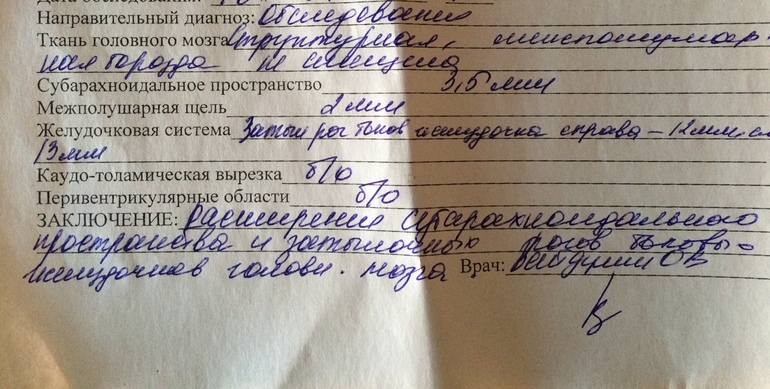 Дата обследования:
Направительный диагноз: Обследование
Ткань головного мозга структурная, межполушар-
ная борозда не смещена
Субарахноидальное пространство 3,5 мм
Межполушарная щель 2 мм
Желудочковая система Затыл рог боков желудочка справа – 12 мм, сл
13 мм
Каудо-толамическая вырезка б/о
Перивентрикулярные области б/о
ЗАКЛЮЧЕНИЕ: Расширение субарахноидального
пространства и затылочных рогов боковых
желудочков головн. мозга Врач: